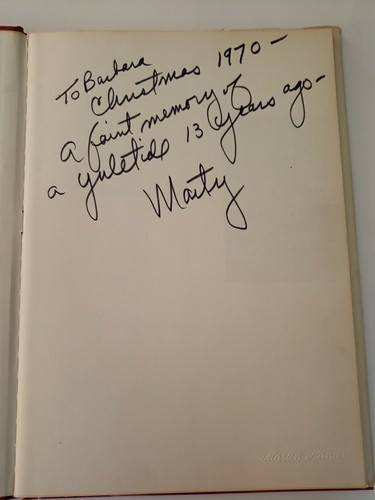 To Barbara
Christmas 1970 –
a faint memory of
a yuletide 13 years ago –
Marty